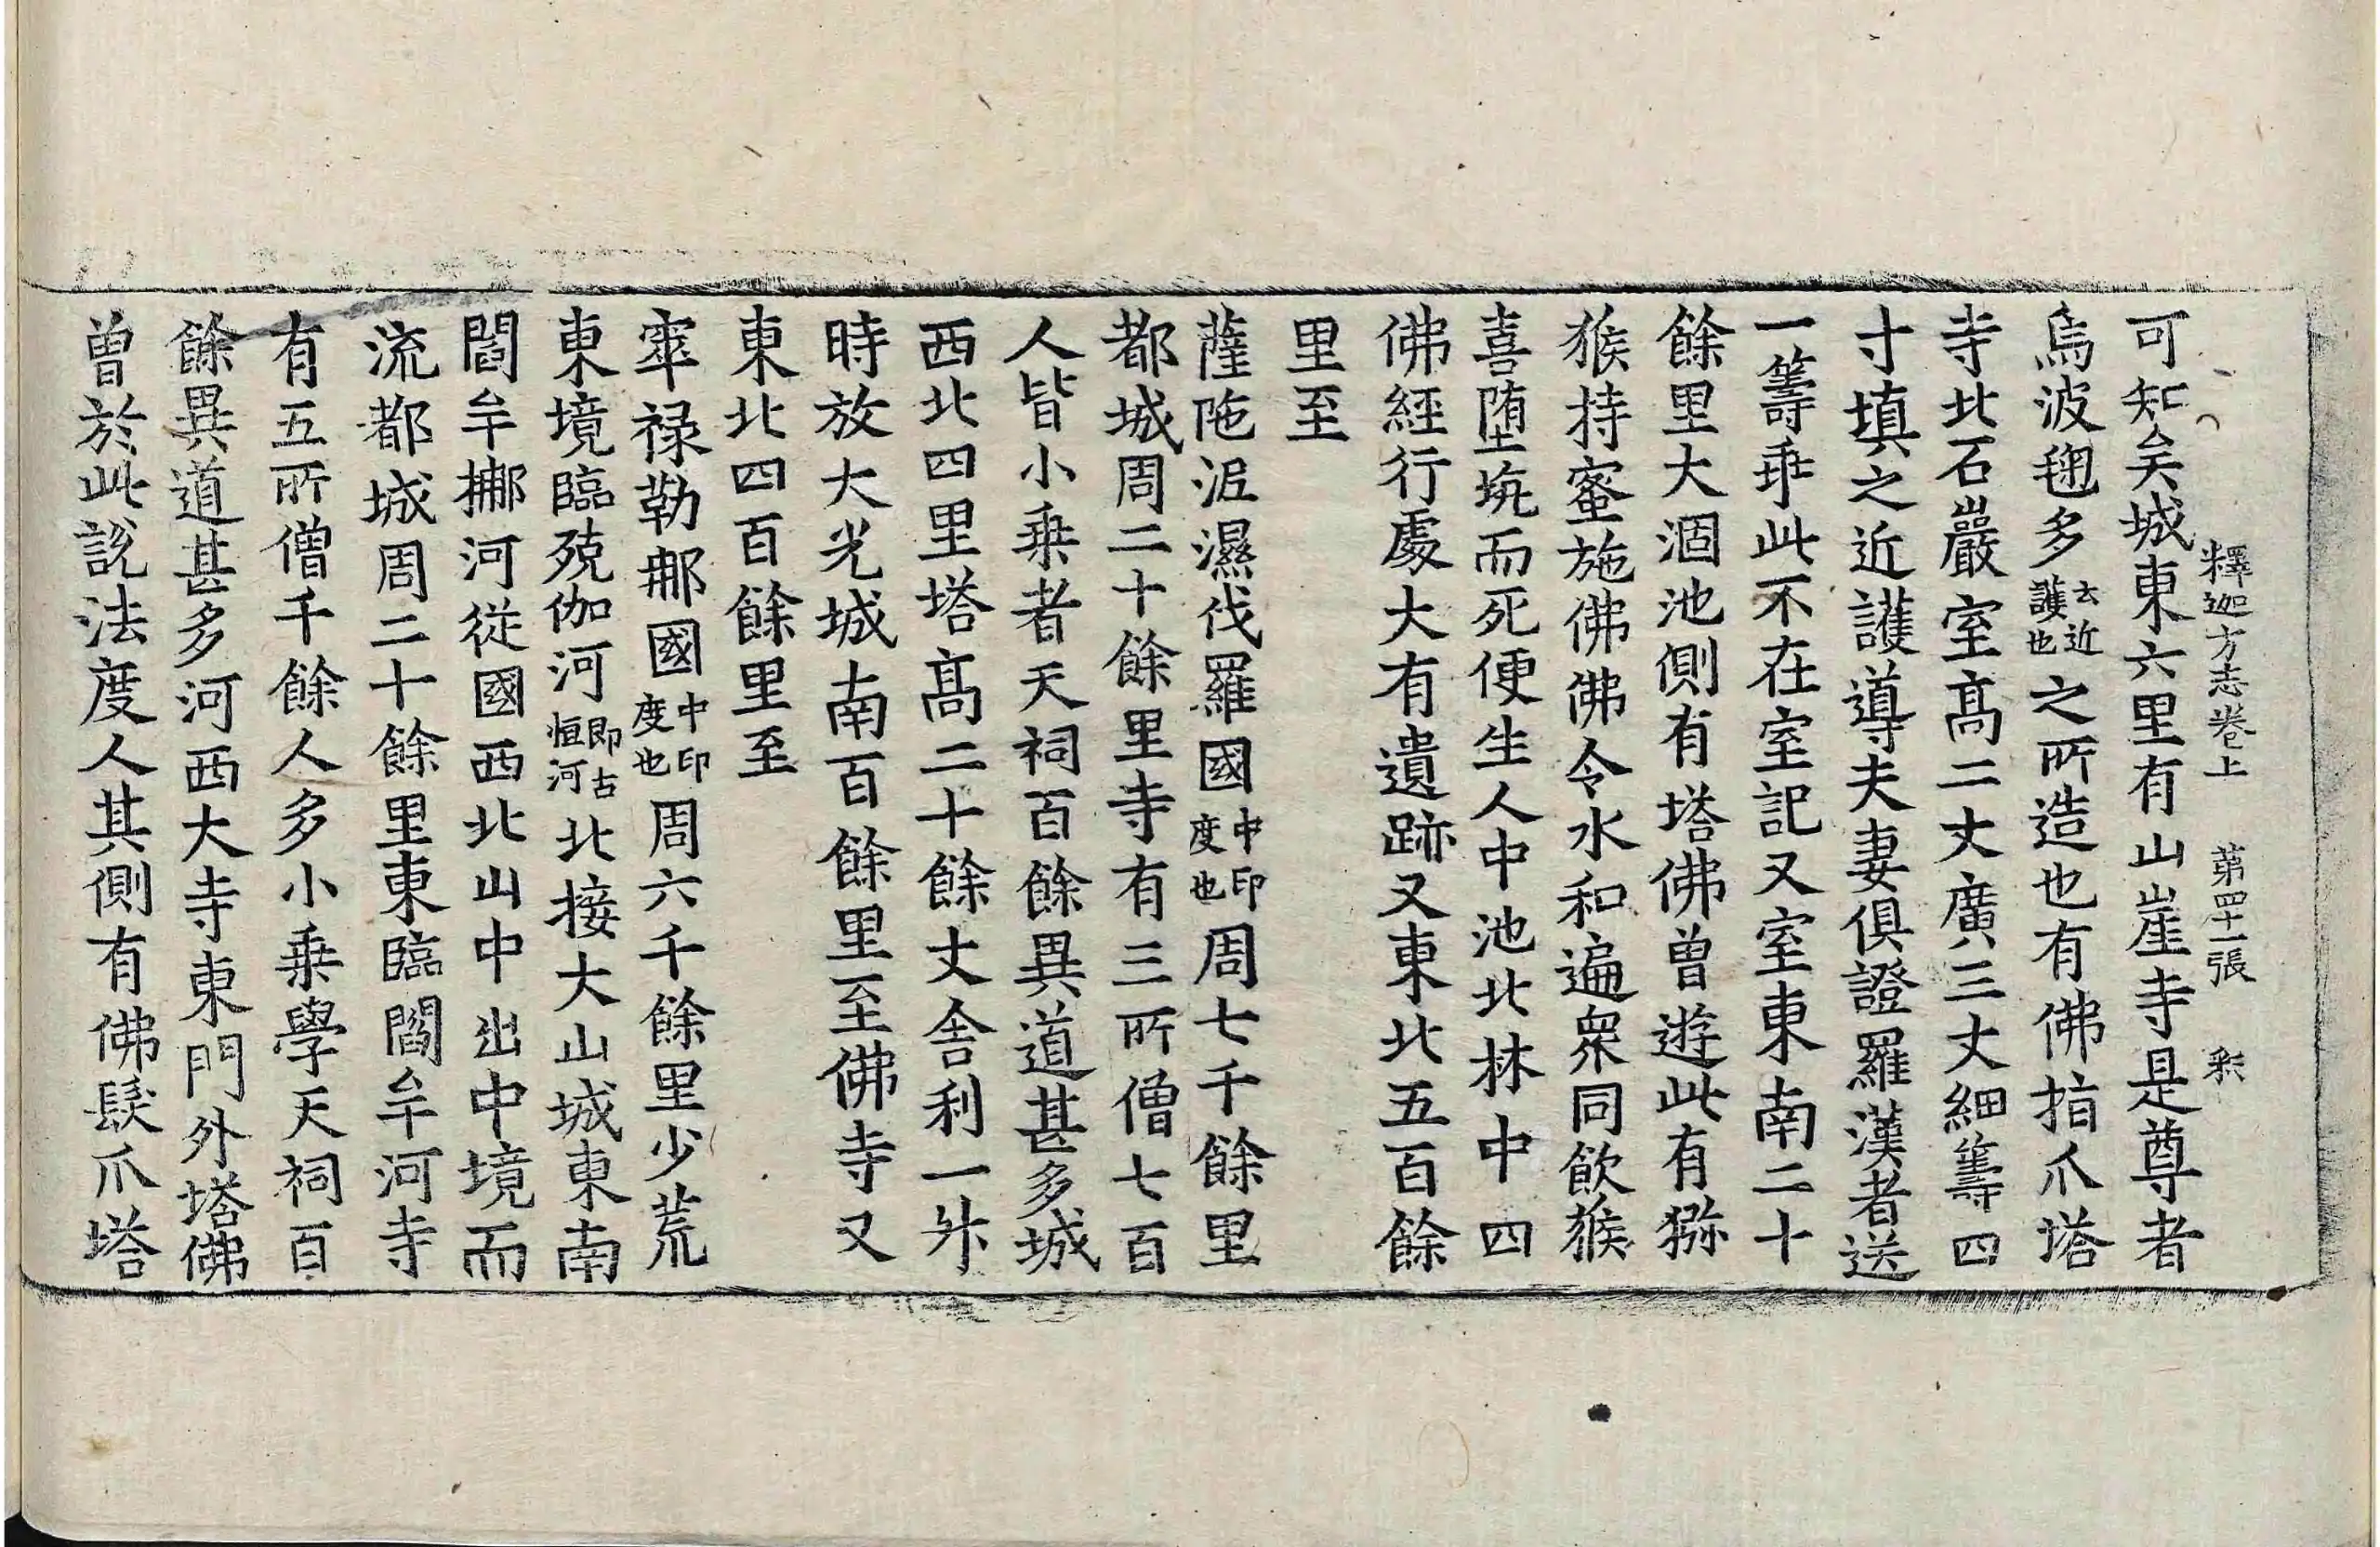 釋迦方志卷上 第四十一張 釆
可知矣城東六里有山崖寺是尊者
烏波毱多云近護也之所造也有佛指爪塔
寺北石巖室高二丈廣三丈細籌四
寸填之近護導夫妻俱證羅漢者送
一籌乖此不在室記又室東南二十
餘里大涸池側有塔佛曾遊此有獼
猴持蜜施佛佛令水和遍衆同飲猴
喜墮坑而死便生人中池北林中四
佛經行處大有遺跡又東北五百餘
里至
薩陁泥濕伐羅國中印度也周七千餘里
都城周二十餘里寺有三所僧七百
人皆小乗者天祠百餘異道甚多城
西北四里塔高二十餘丈舍利一升
時放大光城南百餘里至佛寺又
東北四百餘里至
窣禄勒那國中印度也周六千餘里少荒
東境臨殑伽河即古恒河北接大山城東南
閻牟挪河從國西北山中出中境而
流都城周二十餘里東臨閻牟河寺
有五所僧千餘人多小乗學天祠百
餘異道甚多河西大寺東門外塔佛
曾於此說法度人其側有佛髮爪塔